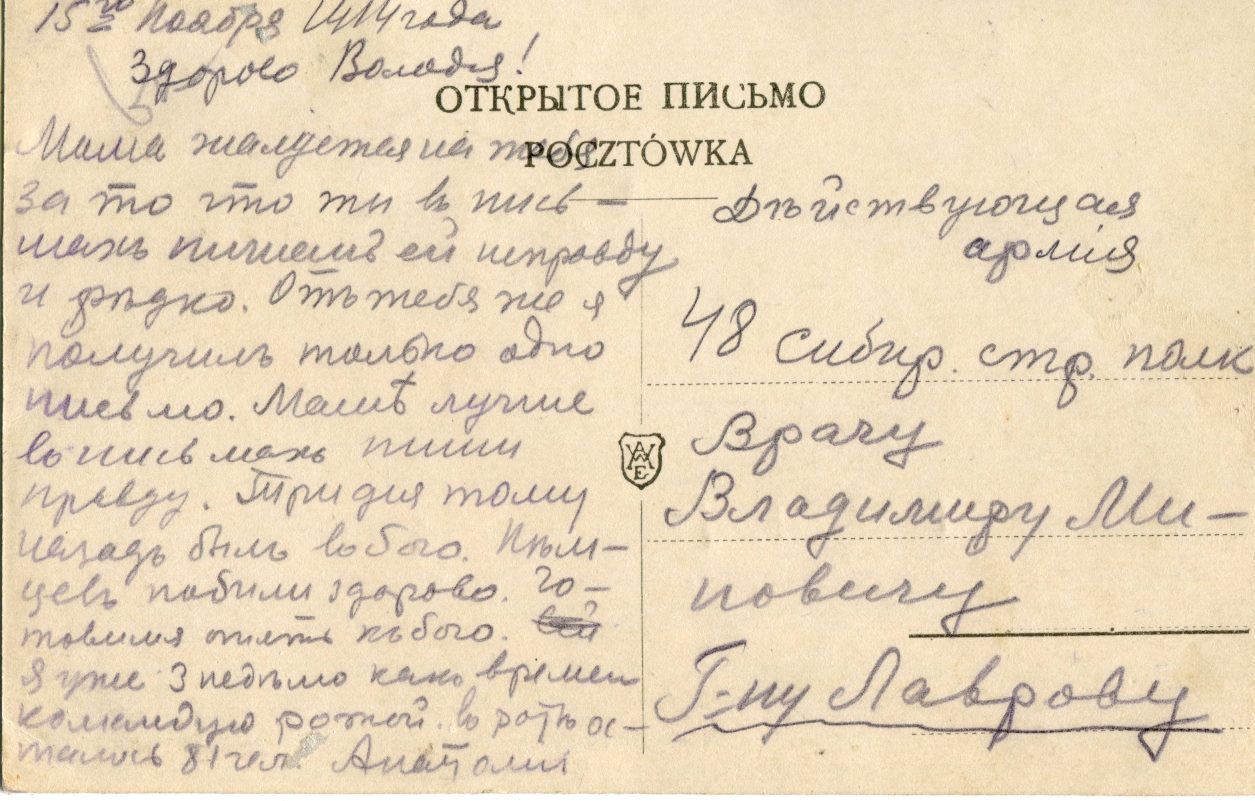 15го Ноября 1914 года
Здорово Володя!
ОТКРЫТОЕ ПИСЬМО
POCZTÓWKA
Мама жалуется на тебя
за то что ты въ пись-
махъ пишешь ей неправду
и рѣдко. Отъ тебя же я
получилъ только одно
письмо. Мамѣ лучше
въ письмахъ пиши
правду. Три дня тому
назадъ былъ въ бою. Нѣм-
цевъ побили здорово. Го-
товимся опять къ бою.
Я уже 3 недѣлю какъ времен
командую ротой. въ ротѣ ос-
талось 81 чел. Анатолий
Дѣйствующая
армія
48 Сибир. стр. полк
Врачу
AWE
Владимиру Ми-
новичу
Г-ну Лаврову